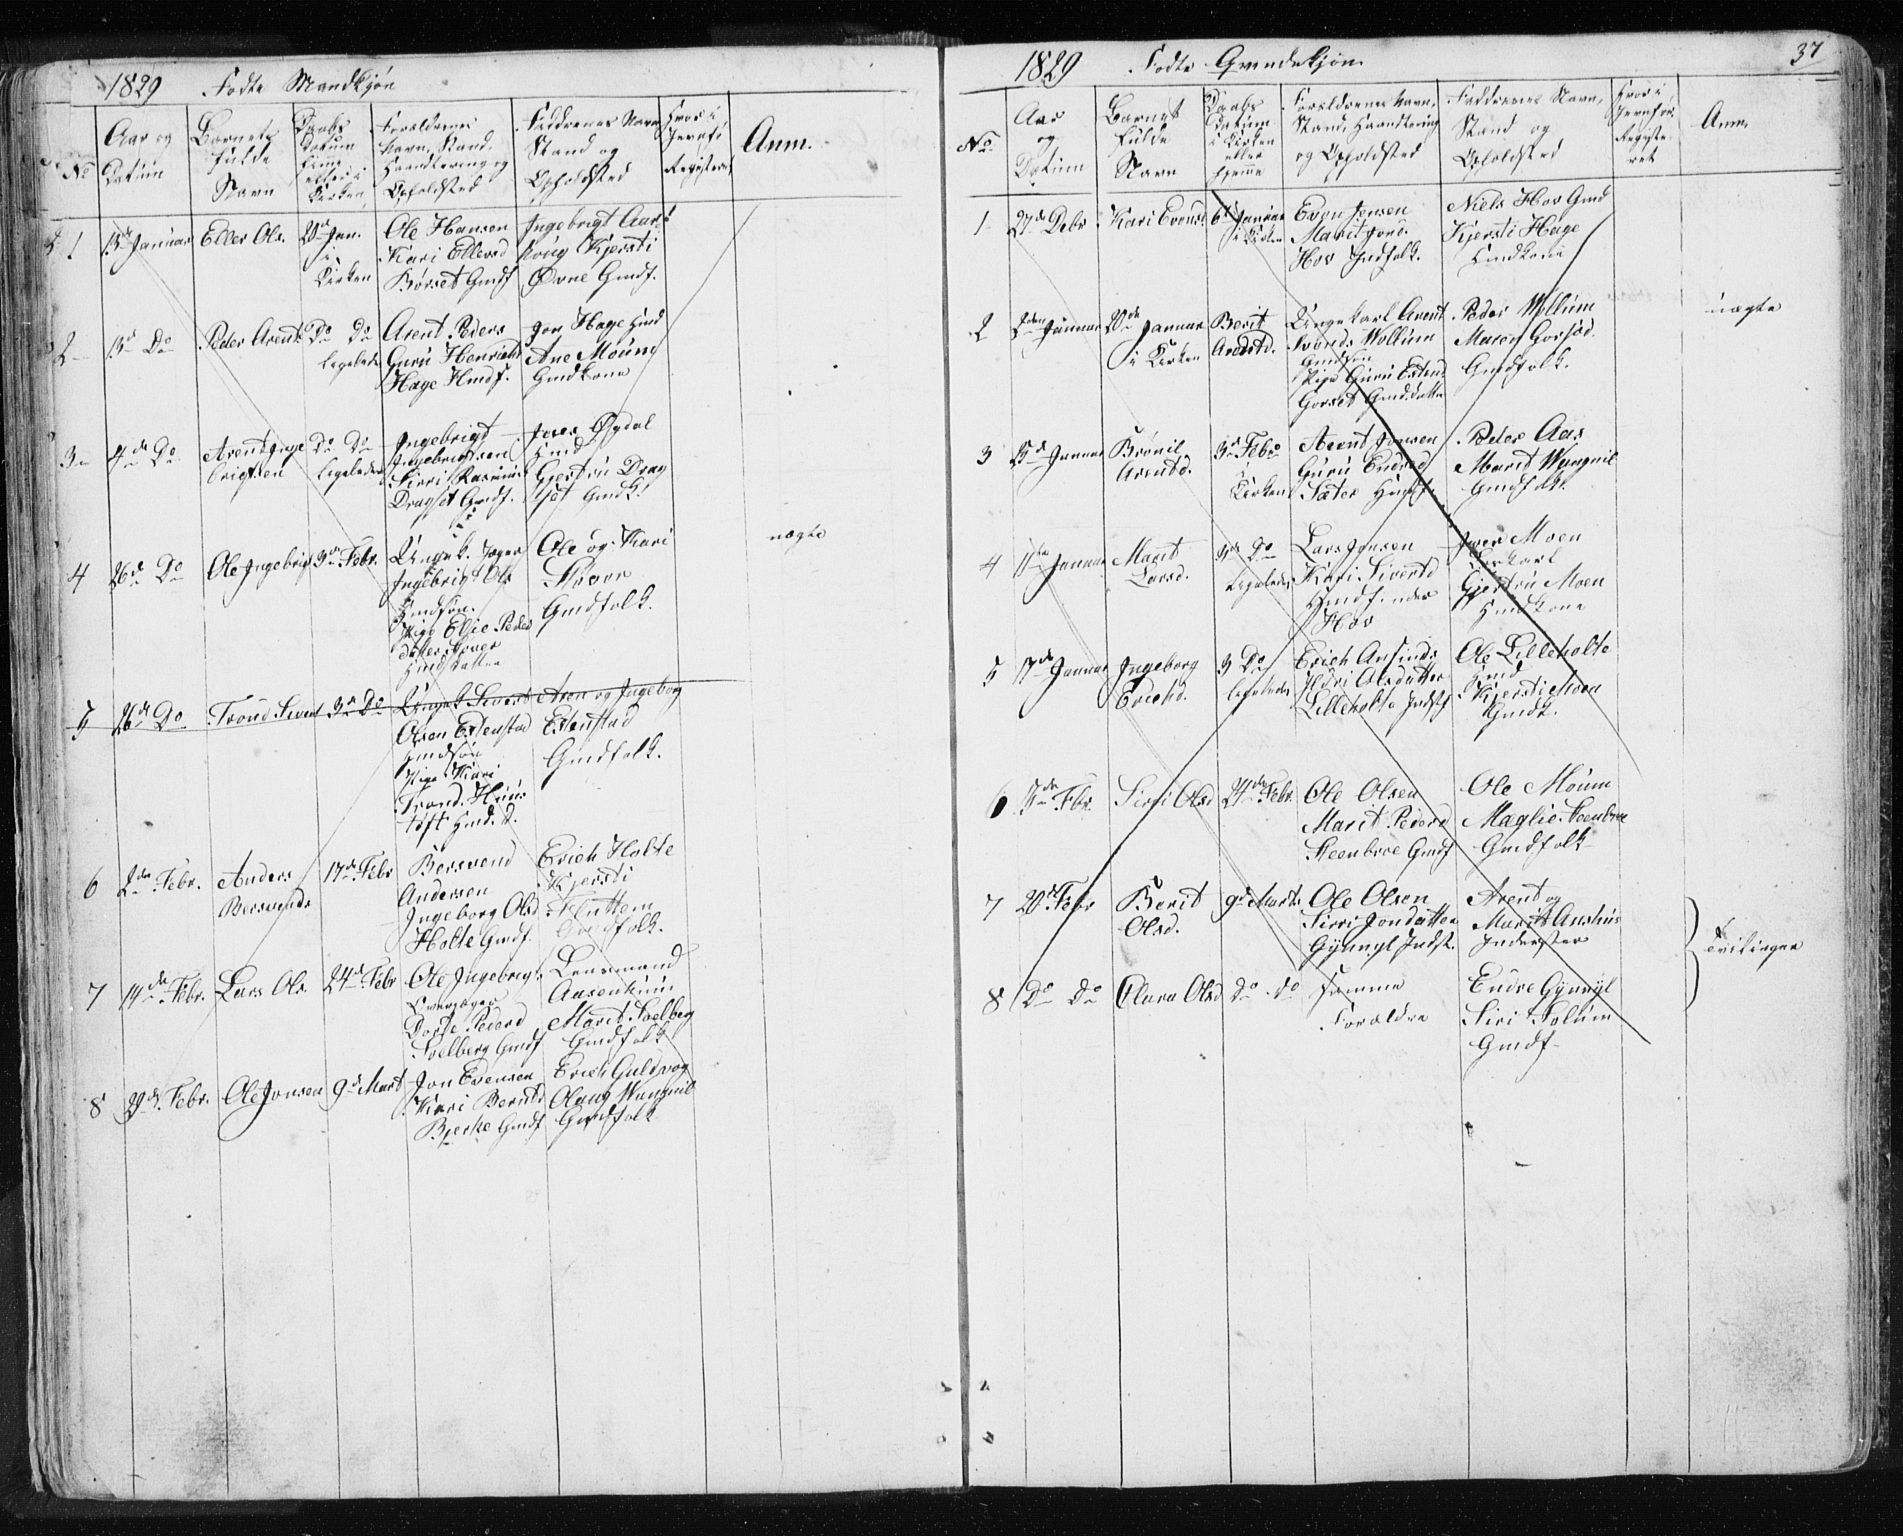 1829 Fødte Mandkjøn
No
Aar og
Datum
Barnets
fulde
Navn
Daabs
Datum
hjeme
eller i
Kirken
Forældrenes
Navn, Stand,
Haandtering og
Opholdsted
Faddrenes Navn
Stand og
Opholdsted
Hvor i
Jevnf:
Registeret
Anm.
1 13de Januar Eller Ols. Jan.
i
Kirken
Ole Hansen
Kari Ellersd
Børset Gmdf
Ingebrigt
Kjersti
Øvne Gmdf.
2 13de Do Peder Arents Do Do
ligeledes
Arent Peders
Guru Henrichs
Hage Hmdf.
Jon Hage Hmd
Ane Moum
Gmdkone
3 4de Do Arent Inge
brigtsen
Do Do
ligeledes
Ingebrigt
Ingebrigtsen
Sirri Rasmus
Dragset Gmdf.
Jens Øgdal
Hmd
Gjertru Drag
set Gmdk.
4 26de Do Ole Ingebrigts 3de Febr.
Ungk.
Ingebrigt Ols
Hmdsøn.
Pige Elie Peders
datter
Hmdsdatter
Ole og Kari
Gmdfolk.
nægte
5 26de Do Trond Siverts 3de Do
Ungk Sivert
Olsen Estenstad
Hmdsøn
Pige Kari
Trond. Huus
toft Hmd. D.
Aren og Ingeborg
Estenstad
Gmdfolk.
6 2den Febr. Anders
Bersvends
17de Febr
Bersvend
Andersen
Ingeborg Olsd
Holte Gmdf.
Erich Holte
Kjersti
Fluttem
Gmdfolk.
7 14de Febr. Lars Ols. 24de Febr
Ole Ingebrigt.
Dorte Pedersd
Solberg Gmdf
Lensmand
Aasenhuus
Marit Solberg
Gmdfolk
8 Febr. Ole Jonsen 9de Mart
Jon Evensen
Kari Berntsd
Bjerke Gmdf
Erich Guldvog
Olaug Wangnil
Gmdfolk
1829 Fødte Qvindekjøn
37
No
Aar
og
Datum
Barnets
fulde
Navn
Daabs
Datum
i Kirken
eller
hjeme
Forældrenes Navn,
Stand, Haandtering
og Opholdsted
Faddrenes Navn,
Stand og
Opholdsted
Hvor i
Jevnfør.
Registe-
ret
Anm.
1 27de Debr Kari Evensd. 6te Januar
i Kirken
Even Jensen
Marit
Hov Indfolk.
Niels Hov Gmd
Kjersti Hage
Hmdkone
2 2den Januar
Berit
Arentsd.
20de Januar
i Kirken
Ungekarl Arent
Svends Wollum
Gmdsøn
Pige Guru Estens
Gorset Gmddatter
Peder Wollum
Maren Gorset
Gmdfolk.
nægte
3 15de Januar Brønil
Arentsd.
3de Febr
i
Kirken
Arent Jonsen
Guru Endresd
Sæter Hmdf.
Peder Aas
Marit Wangnil
Gmdfolk.
4 11te Januar Marit
Larsd.
3de Do
ligeledes
Lars Jensen
Kari Sivertsd
Hmdf. nder
Hov
Iver Moen
Gjertru Moen
Hmdkone
5 17de Januar Ingeborg
Erichsd.
3 Do
ligeledes
Erich Amunds
Kari Olsdatter
Lilleholte Indstf
Ole Lilleholte
Hmd
Kjersti Moen
Gmdk.
6 Febr. Sirri Olsd 24de Febr.
Ole Olsen
Marit Pedersd
Steenbroe Gmdf
Ole Moum
Maglie Steenbroe
Gmdfolk
7 20de Febr Berit
Olsd.
9de Marts
Ole Olsen
Sirri Jonsdatter
Gynnyl Indst.
Arent og
Marit Aashuus
Inderster
Tvillinger
8 Do Do Clara Olsd Do Do
Samme
Forældre
Endre Gynnyl
Siri Solum
Gmdf